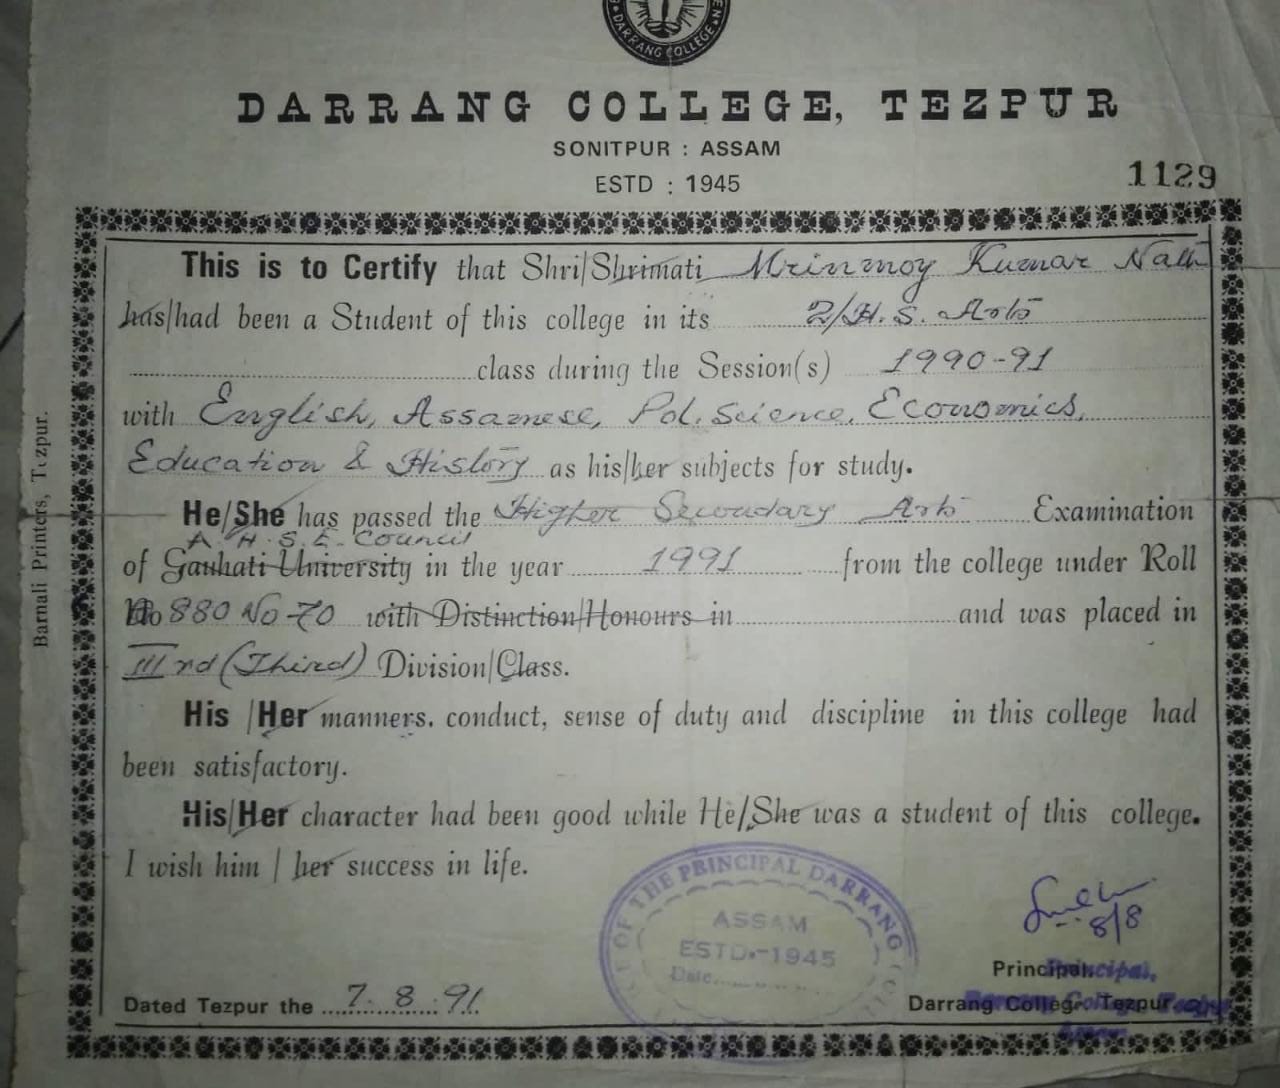 DARRANG COLLEGE
DARRANG COLLEGE, TEZPUR
SONITPUR : ASSAM
ESTD : 1945
1129
This is to Certify that Shri/Shrimati Mrinmoy Kumar Nath
has/had been a Student of this college in its 2/H.S. Arts
class during the Session(s) 1990-91
with English, Assamese, Pol. Science, Economics,
Education & History as his/her subjects for study.
He/She has passed the Higher Secondary Arts Examination
A.H.S.E. Council
of Gauhati University in the year 1991 from the college under Roll
No 880 No-70 with Distinction/Honours in and was placed in
IIIrd (Third) Division/Class.
His /Her manners. conduct, sense of duty and discipline in this college had
been satisfactory.
His/Her character had been good while He/She was a student of this college.
I wish him / her success in life.
OF THE PRINCIPAL DARRANG
ASSAM
ESTD.-1945
Date
8/8
Principal.
Principal,
Dated Tezpur the 7. 8. 91
Darrang College, Tezpur
Darrang College, Tezpur
Assam
Barnali Printers, Tezpur.